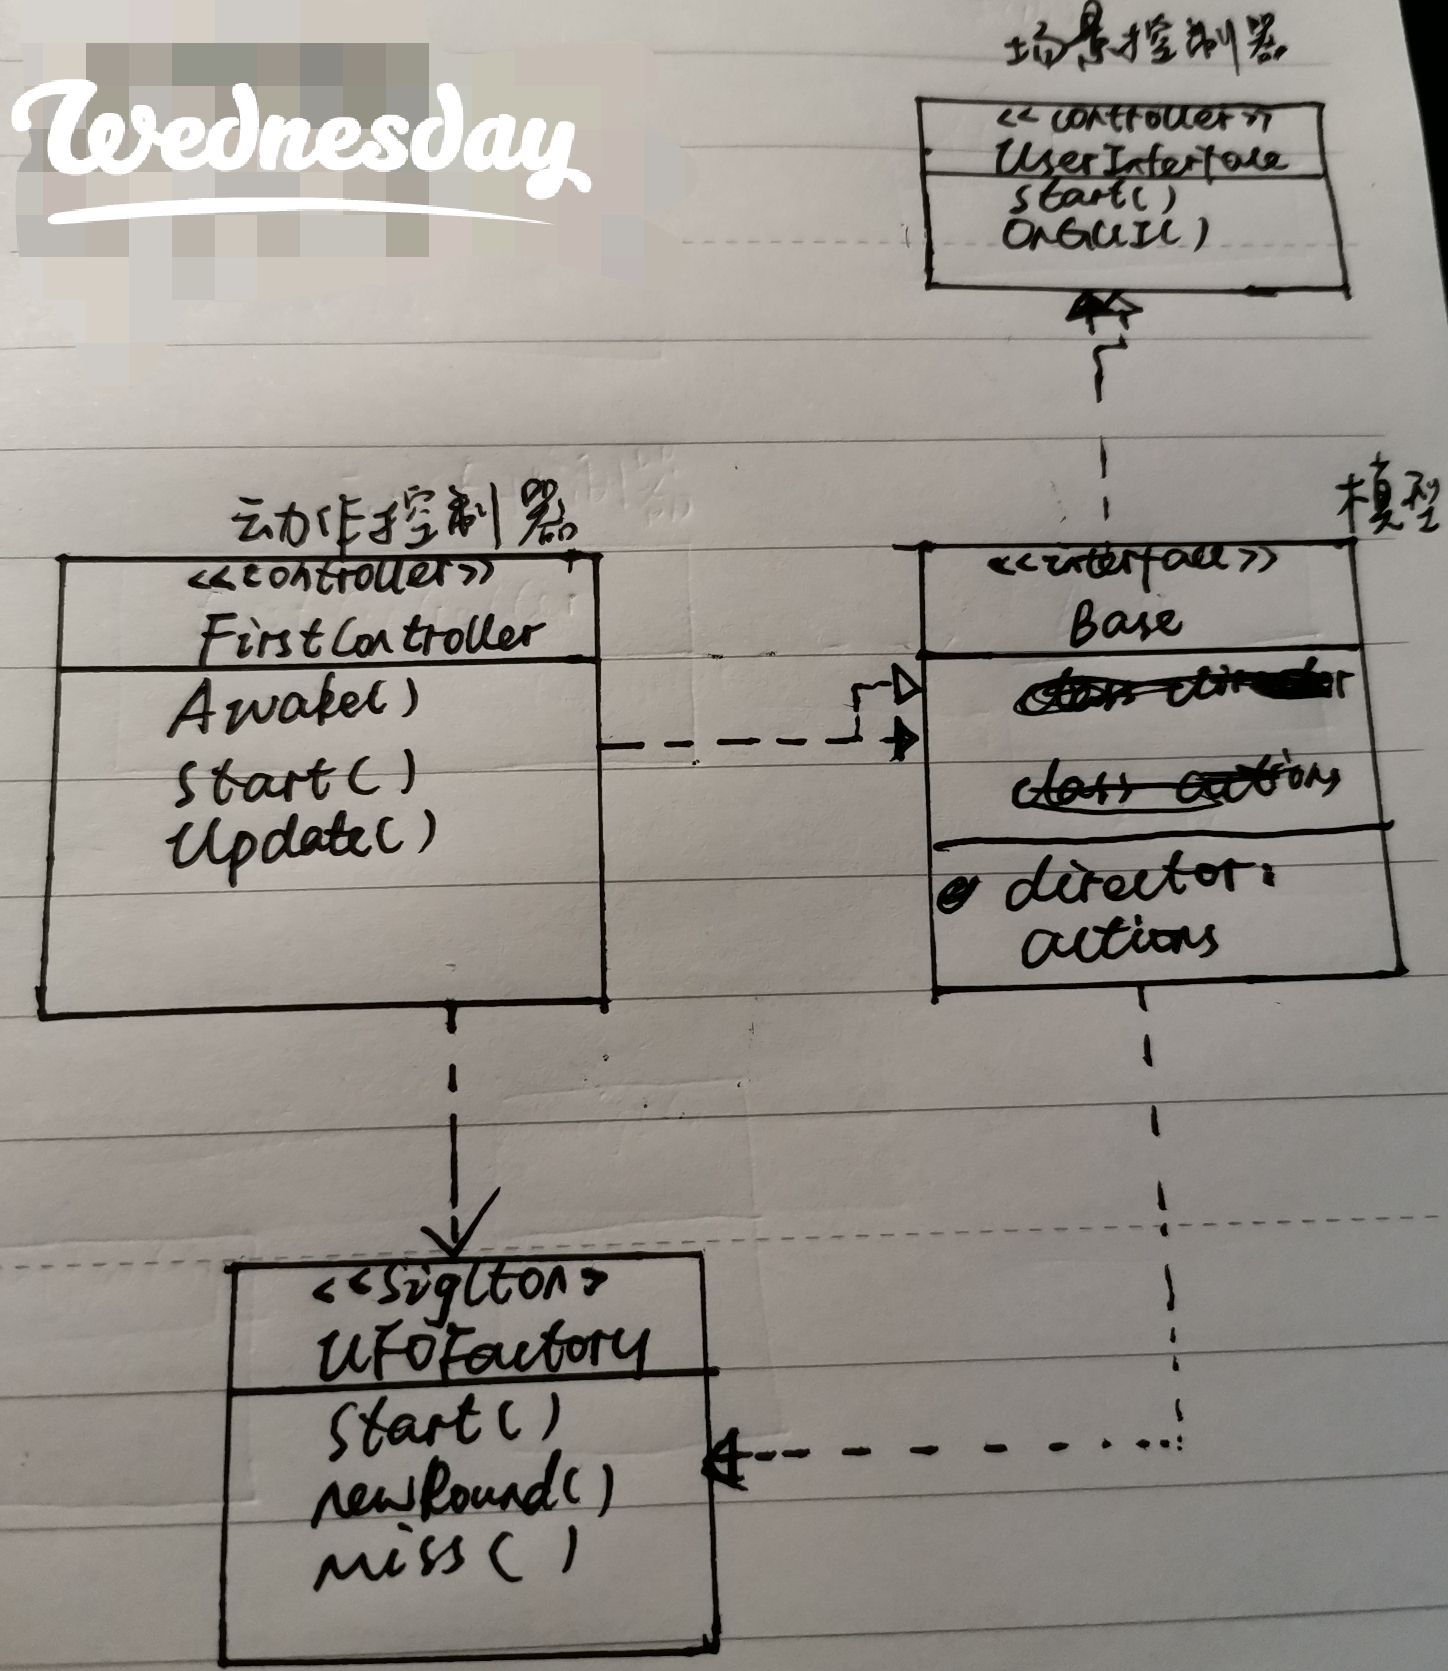 Wednesday
场景控制器
<<controller>>
UserInterface
start()
OnGUI()
动作控制器
<<controller>>
FirstController
Awake()
Start()
Update()
模型
<<interface>>
Base
class director
class actions
director:
actions
<<siglton>
UFOFactory
Start()
newRound()
miss()